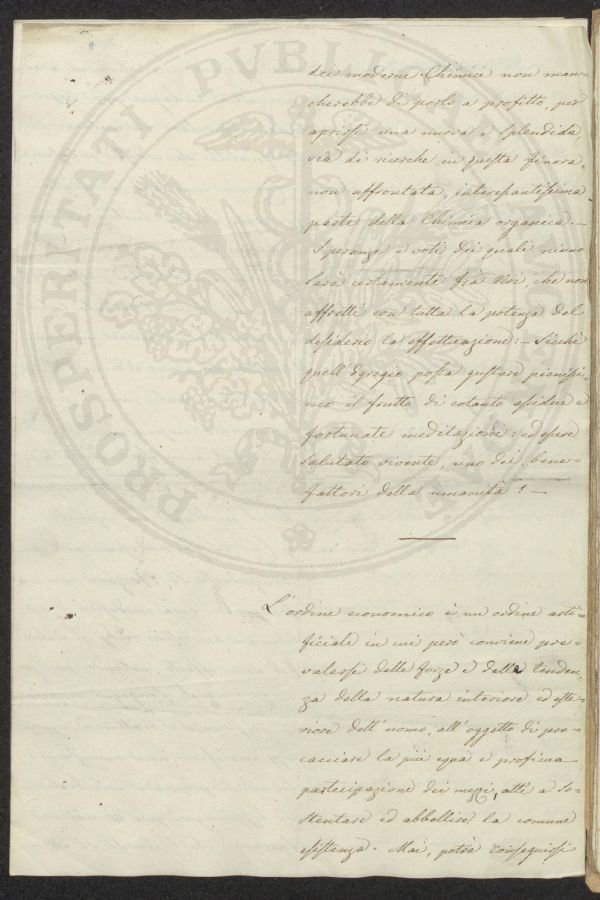 dei moderni Chimici non man=
cherebbe di porlo a profitto, per
aprirsi una nuova e splendida
via di ricerche in questa finora
non affrontata, interessantissima
parte della Chimica organica. —
Speranze e voti dei quali niuno
sarà certamente fra Noi, che non
affretti con tutta la potenza del
desiderio la effettuazione: — Sicchè
quell'Egregio possa gustare pienissi=
mo il frutto di cotanto assidue e
fortunate meditazioni: ed essere
salutato vivente, uno dei bene=
fattori della umanità! —
L'ordine economico è un ordine arti=
ficiale in cui però conviene pre=
valersi delle forze e delle tenden=
za della natura interiore ed este=
riore dell'uomo, all'oggetto di pro=
cacciare la più equa e proficua
partecipazione dei mezzi atti a so=
stentare ed abbellire la comune
esistenza. Mai, potrà conseguirsi
PROSPERITATI PUBLICAE